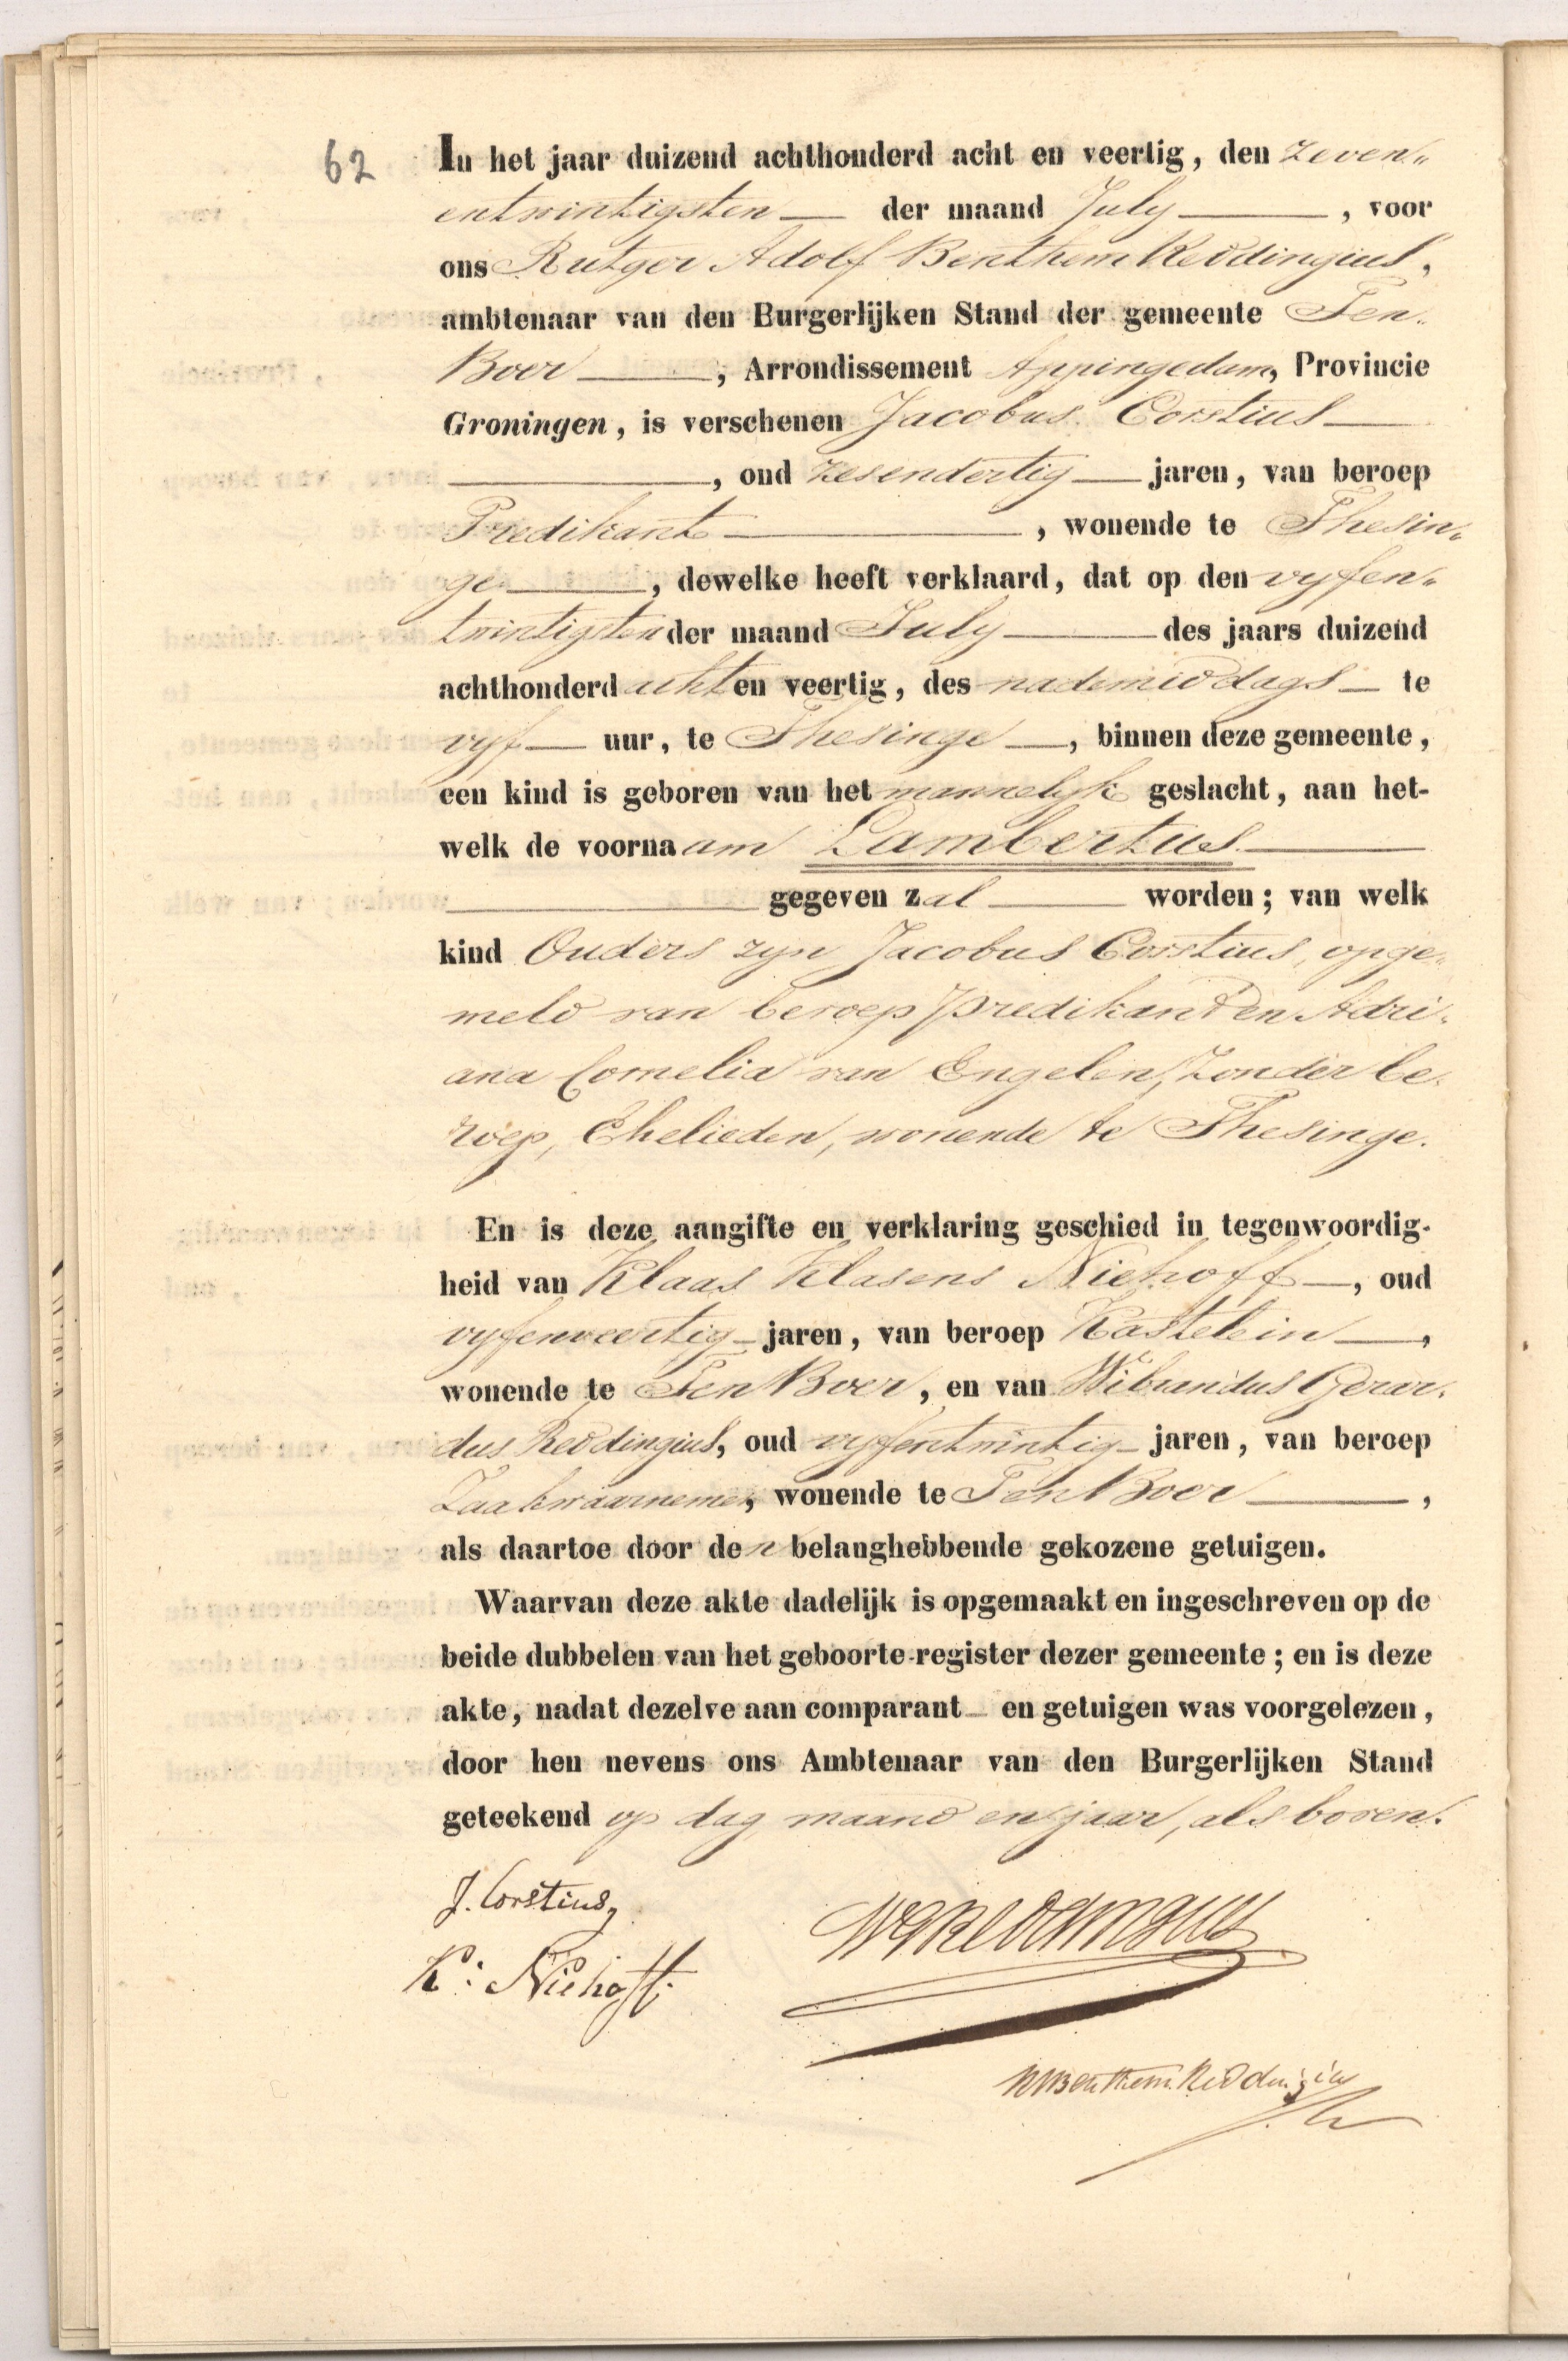 62
In het jaar duizend achthonderd acht en veertig, den zeven„
entwintigsten — der maand July —, voor
ons Rutger Adolf Benthem Reddingius,
ambtenaar van den Burgerlijken Stand der gemeente Ten„
Boer —, Arrondissement Appingedam, Provincie
Groningen, is verschenen Jacobus Corstius —
—, oud zesendertig — jaren, van beroep
Predikant —, wonende te Thesin„
ge —, dewelke heeft verklaard, dat op den vyfen„
twintigsten der maand July — des jaars duizend
achthonderd acht en veertig, des nademiddags — te
vyf — uur, te Thesinge —, binnen deze gemeente,
een kind is geboren van het mannelyk geslacht, aan het-
welk de voornaam Lambertus —
— gegeven zal — worden; van welk
kind Ouders zyn Jacobus Corstius, opge„
meld van beroep Predikant en Adri„
ana Cornelia van Engelen, zonder be„
roep, Ehelieden, wonende te Thesinge.
En is deze aangifte en verklaring geschied in tegenwoordig-
heid van Klaas Klasens Niehoff —, oud
vyfenveertig — jaren, van beroep Kastelein —,
wonende te Ten Boer, en van Wibrandus Gerar„
dus Reddingius, oud vyfentwintig — jaren, van beroep
Zaakwaarnemer, wonende te Ten Boer —,
als daartoe door den belanghebbende gekozene getuigen.
Waarvan deze akte dadelijk is opgemaakt en ingeschreven op de
beide dubbelen van het geboorte-register dezer gemeente; en is deze
akte, nadat dezelve aan comparant — en getuigen was voorgelezen,
door hen nevens ons Ambtenaar van den Burgerlijken Stand
geteekend op dag maand en jaar, als boven.
J. Corstius,
WGReddingius
K: Niehoff.
RABenthem Reddingius